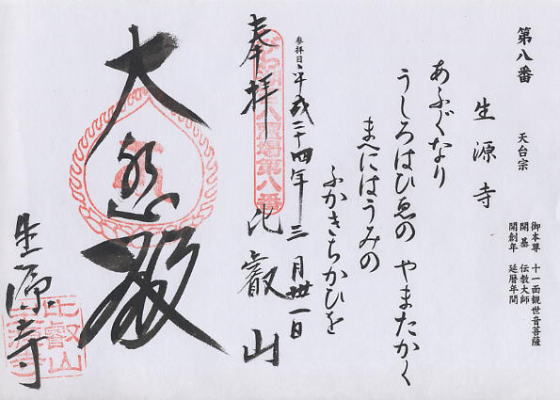 第八番
生源寺
天台宗
御本尊 十一面観世音菩薩
開基 伝教大師
開創年 延暦年間
あふぐなり
うしろはひゑの やまたかく
まへにはうみの
ふかきちかひを
参拝日
平成二十四年三月卅一日
奉拝
比叡山
大悲殿
生源寺
比叡山
生源寺